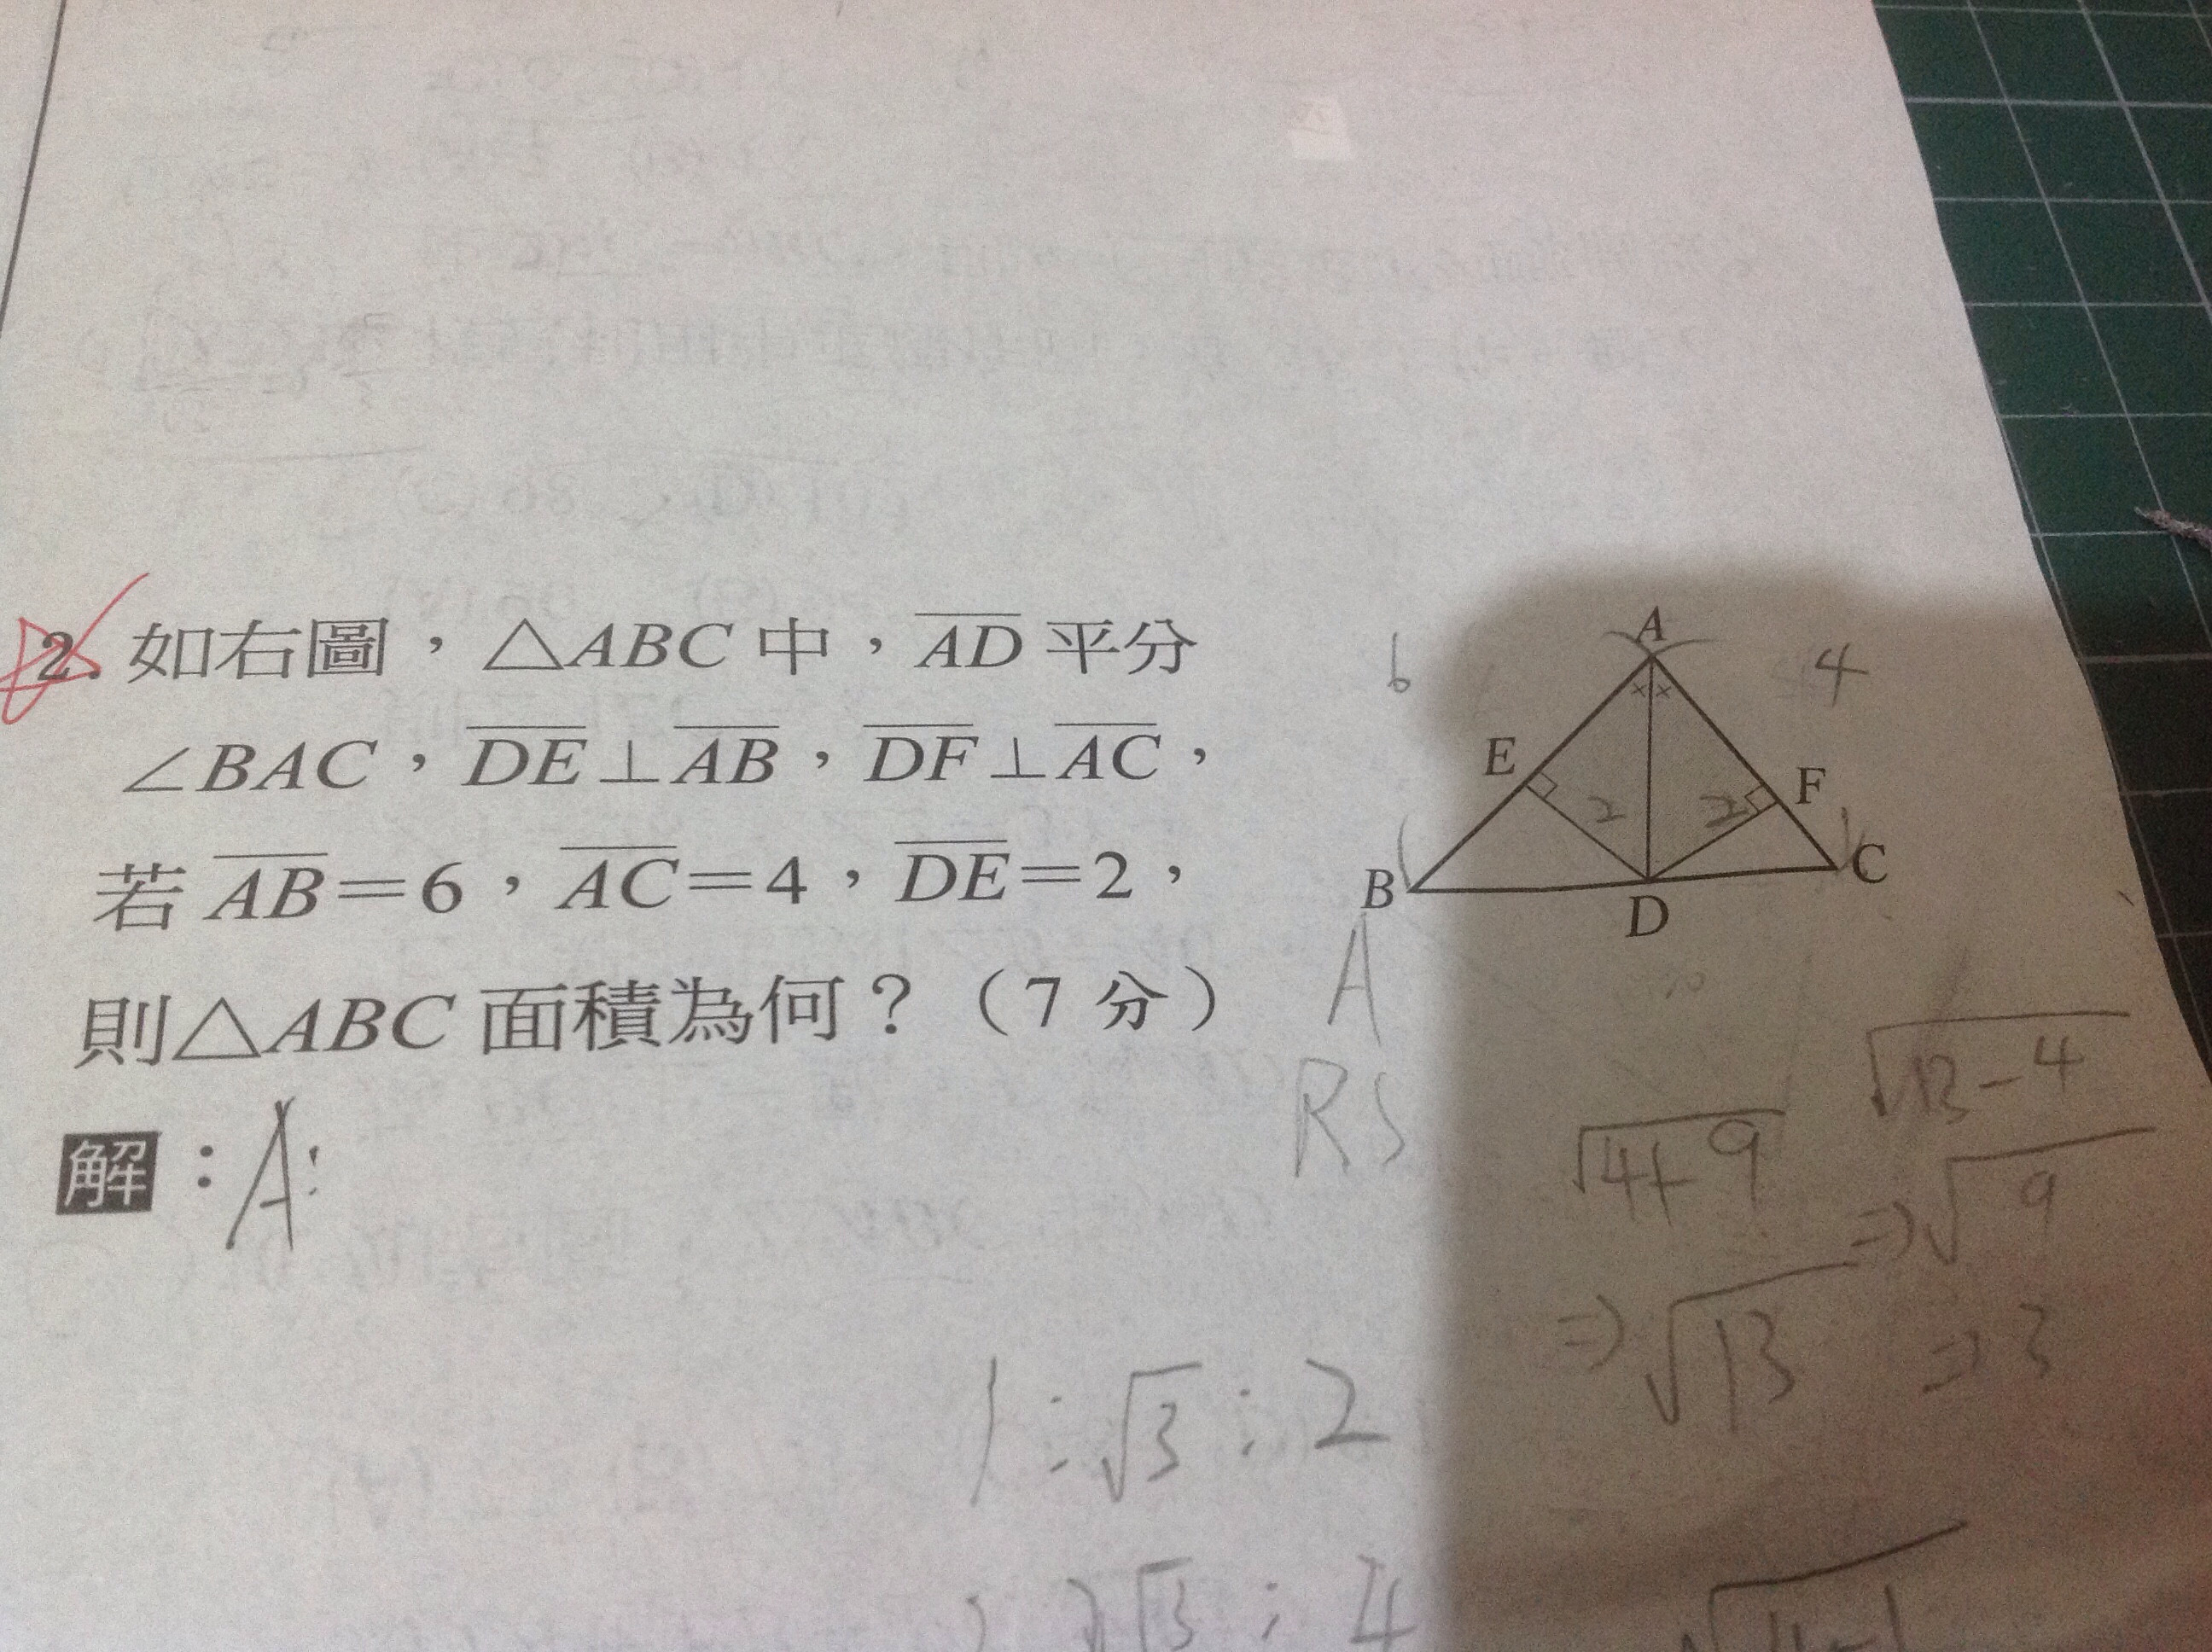 2. 如右圖，△ABC 中，AD 平分
∠BAC，DE⊥AB，DF⊥AC，
若 AB=6，AC=4，DE=2，
則△ABC 面積為何？（7 分）
解：A:
A
6
4
E
F
2
2
B
C
D
A
RS
√13-4
√4+9
⇒√9
⇒√13
⇒3
1:√3:2
2√3:4